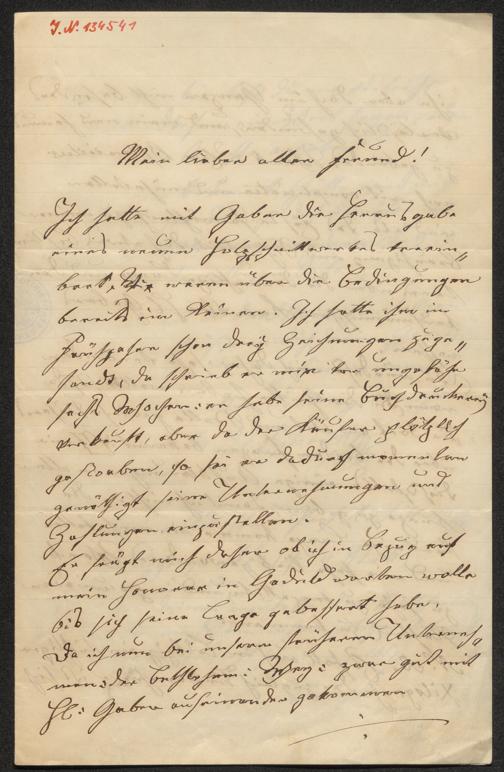 J.N. 134541
Mein lieber alter Freund!
Ich hatte mit Gaber die Herausgabe
eines neuen Holzschnittwerkes verein„
bart, Wir waren über die Bedingungen
bereits im Reinen. Ich hatte ihm im
Frühjahre schon drey Zeichnungen zuge„
sandt, da schrieb er mir vor ungefähr
sechs Wochen: er habe seine Buchdruckerey
verkauft, aber da der Käufer plötzlich
gestorben, so sei er dadurch momentan
genöthigt seine Unternehmungen und
Zahlungen einzustellen.
Er frägt mich daher ob ich in Bezug auf
mein Honorar in Geduld warten wolle
bis sich seine Lage gebessert habe.
Da ich nun bei unserm früheren Unterneh„
men: der Bethlehem: Weg: zwar gut mit
H: Gaber auseinander gekommen